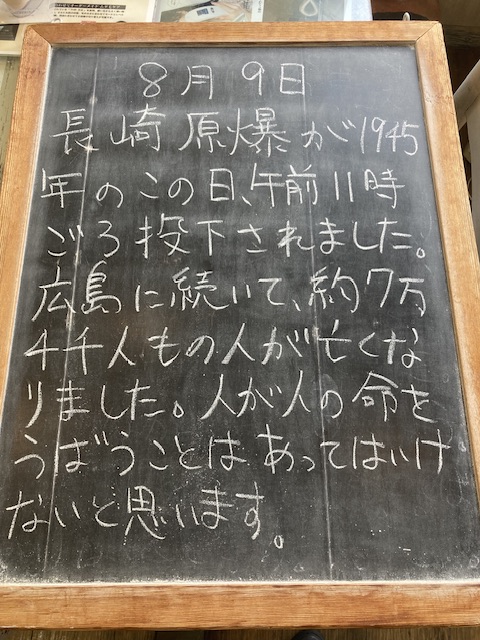 8月9日
長崎原爆が1945
年のこの日、午前11時
ごろ投下されました。
広島に続いて、約7万
4千人もの人が亡くな
りました。人が人の命を
うばうことはあってはいけ
ないと思います。